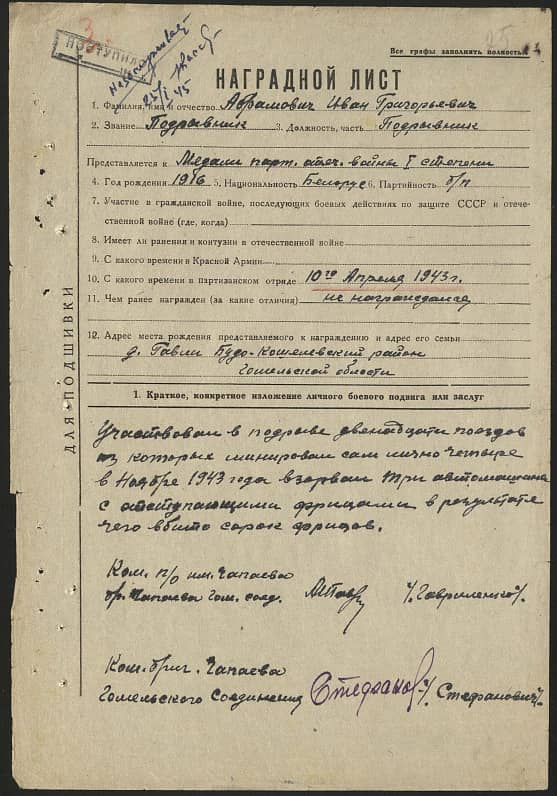 ПОСТУПИЛ
25/I 45
25
Все графы заполнять полностью
НАГРАДНОЙ ЛИСТ
1. Фамилия, имя и отчество Абрамович Иван Григорьевич
2. Звание Подрывник 3. Должность, часть Подрывник
Представляется к Медали парт. отеч. войны I степени
4. Год рождения 1916 5. Национальность Белорус 6. Партийность б/п
7. Участие в гражданской войне, последующих боевых действиях по защите СССР и отече-
ственной войне (где, когда)
8. Имеет ли ранения и контузии в отечественной войне
9. С какого времени в Красной Армии
10. С какого времени в партизанском отряде 10го Апреля 1943 г.
11. Чем ранее награжден (за какие отличия) не награждался
12. Адрес места рождения представляемого к награждению и адрес его семьи
д. Гавли Будо-Кошелевский район
Гомельской области
ДЛЯ ПОДШИВКИ
1. Краткое, конкретное изложение личного боевого подвига или заслуг
Участвовал в подрыве двенадцати поездов
из которых минировал сам лично четыре
в Ноябре 1943 года взорвал три автомашины
с отступающими фрицами в результате
чего вбито сорок фрицов.
Ком. п/о им. Чапаева
бр. Чапаева Гом. соед. /Гавриленко/.
Ком. бриг. Чапаева
Гомельского Соединения Стефанов /Стефанович/.